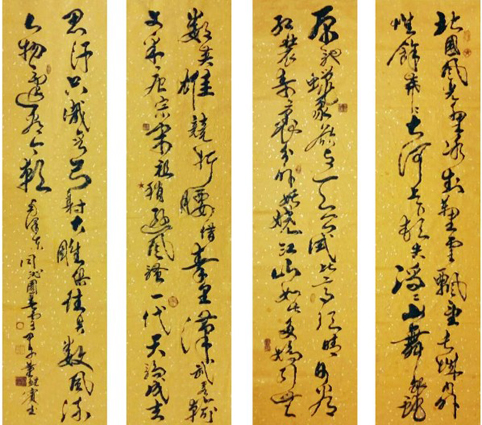 北國風光千里冰封萬里雪飄望長城内外
惟餘莽莽大河上下頓失滔滔山舞銀蛇
原馳蠟象欲與天公試比高須晴日看
紅裝素裹分外妖嬈江山如此多嬌引無
數英雄競折腰惜秦皇漢武略輸
文采唐宗宋祖稍遜風騷一代天驕成吉
思汗只識彎弓射大雕俱往矣數風流
人物還看今朝
毛澤東
詞沁園春雪甲午